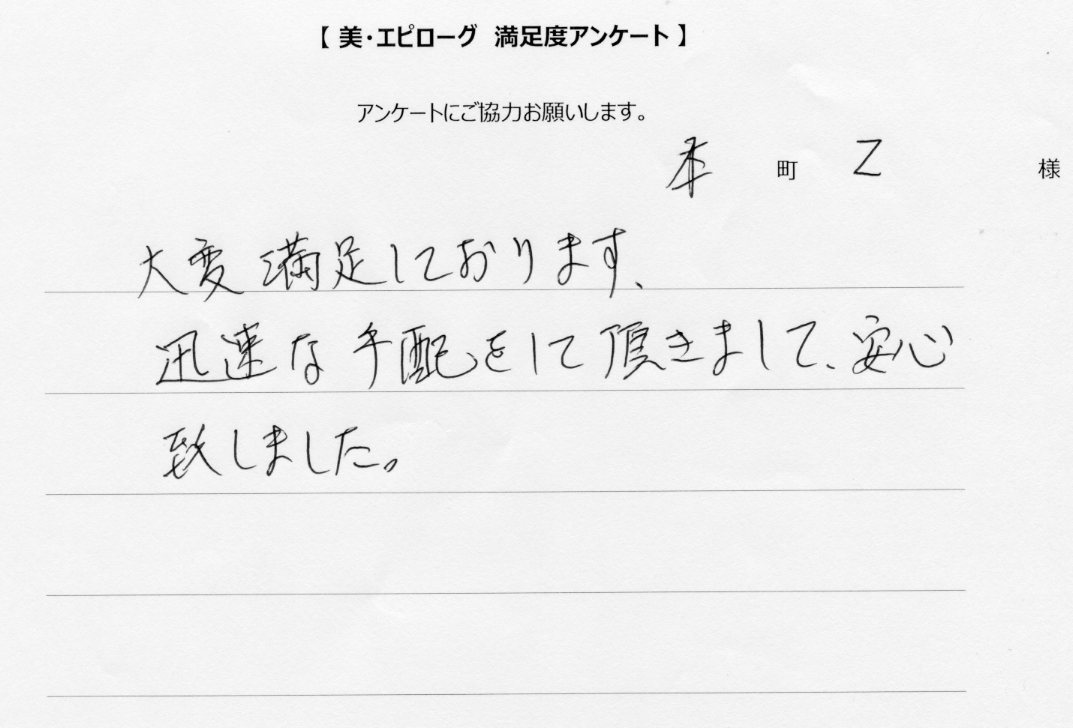 【 美・エピローグ 満足度アンケート 】
アンケートにご協力お願いします。
本 町 Z 様
大変満足しております、
迅速な手配をして頂きまして、安心
致しました。